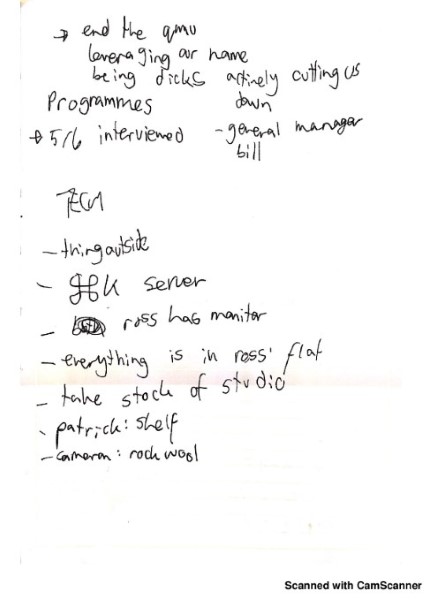 → end the qmu
leveraging our name
being dicks actively cutting us down
Programmes
→ 5/6 interviewed - general manager bill
TECH
- thing outside
- ⌘K server
- ross has monitor
- everything is in ross' flat
- take stock of studio
- patrick: shelf
- cameron: rockwool
Scanned with CamScanner